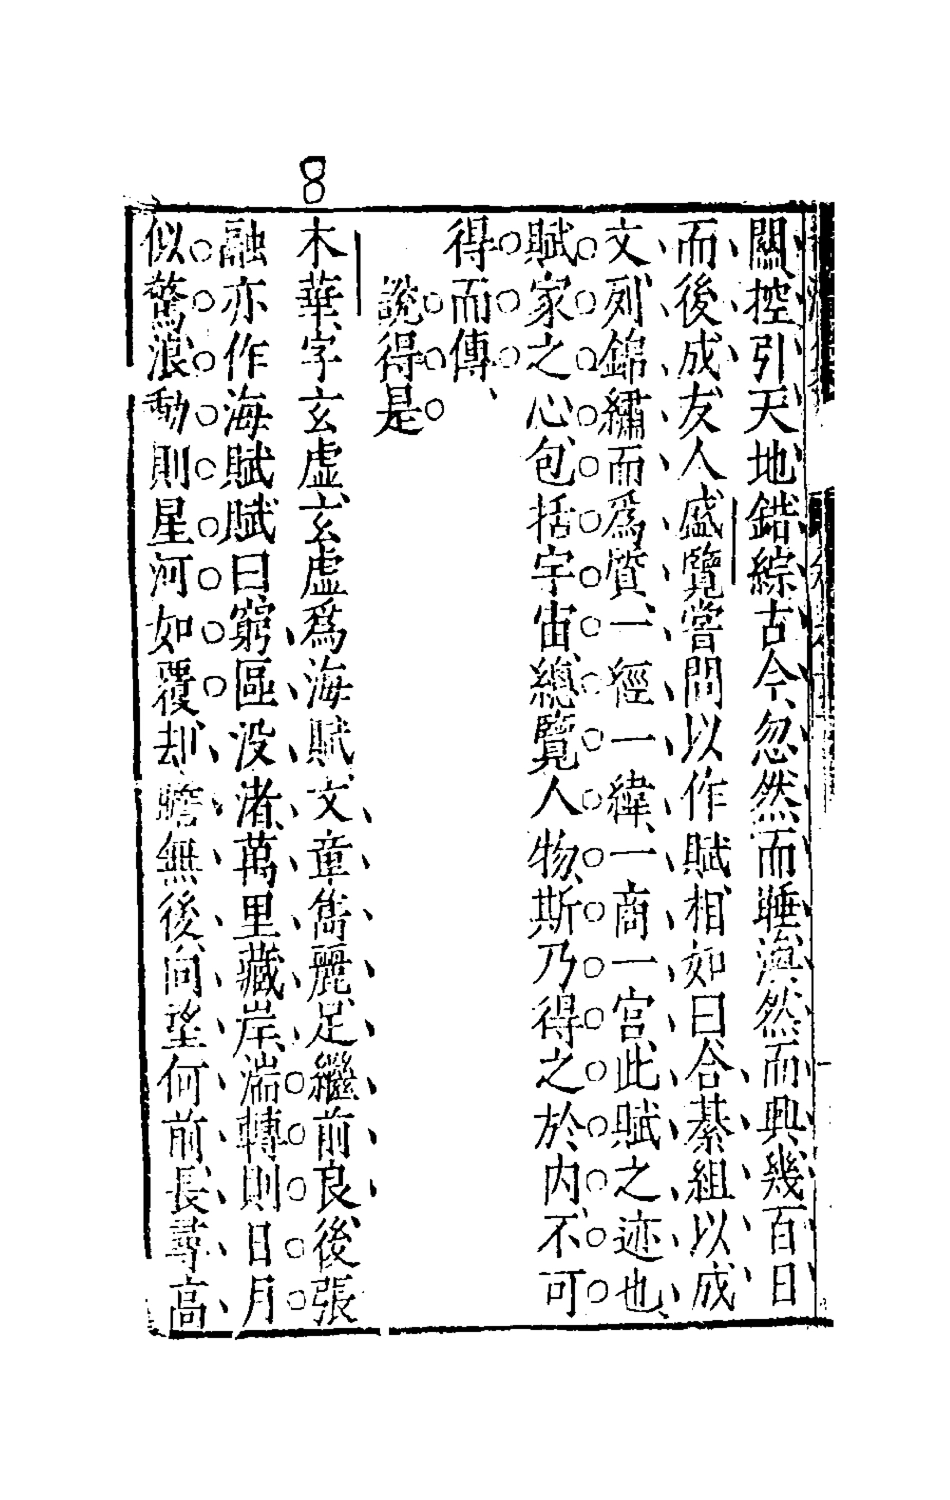 8
關控引天地錯綜古今忽然而睡渙然而興幾百日
而後成友人盛覽嘗問以作賦相如曰合綦組以成
文列錦繡而爲質一經一緯一商一宮此賦之迹也
賦家之心包括宇宙總覽人物斯乃得之於內不可
得而傳
說得是
木華字玄虛玄虛爲海賦文章雋麗足繼前良後張
融亦作海賦賦曰窮區没渚萬里藏岸湍轉則日月
似驚浪動則星河如覆却瞻無後向望何前長尋高